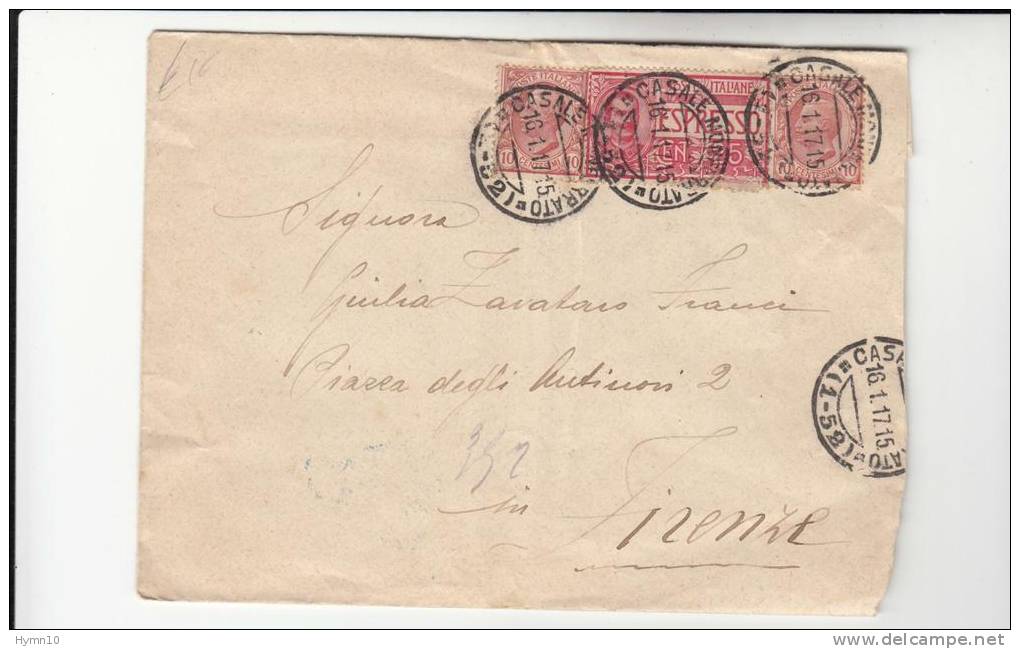 POSTE ITALIANE
ESPRESSO
CEN 25
10 CENTESIMI 10
10 CENTESIMI 10
CASALE MONFERRATO
16.1.17.15
CASALE MONFERRATO
16.1.17.15
CASALE MONFERRATO
16.1.17.15
Signora
Giulia Zavataro Franci
Piazza degli Antinori 2
in Firenze
CASA
16.1.17.15
RATO
Hymn10
delcampe.net